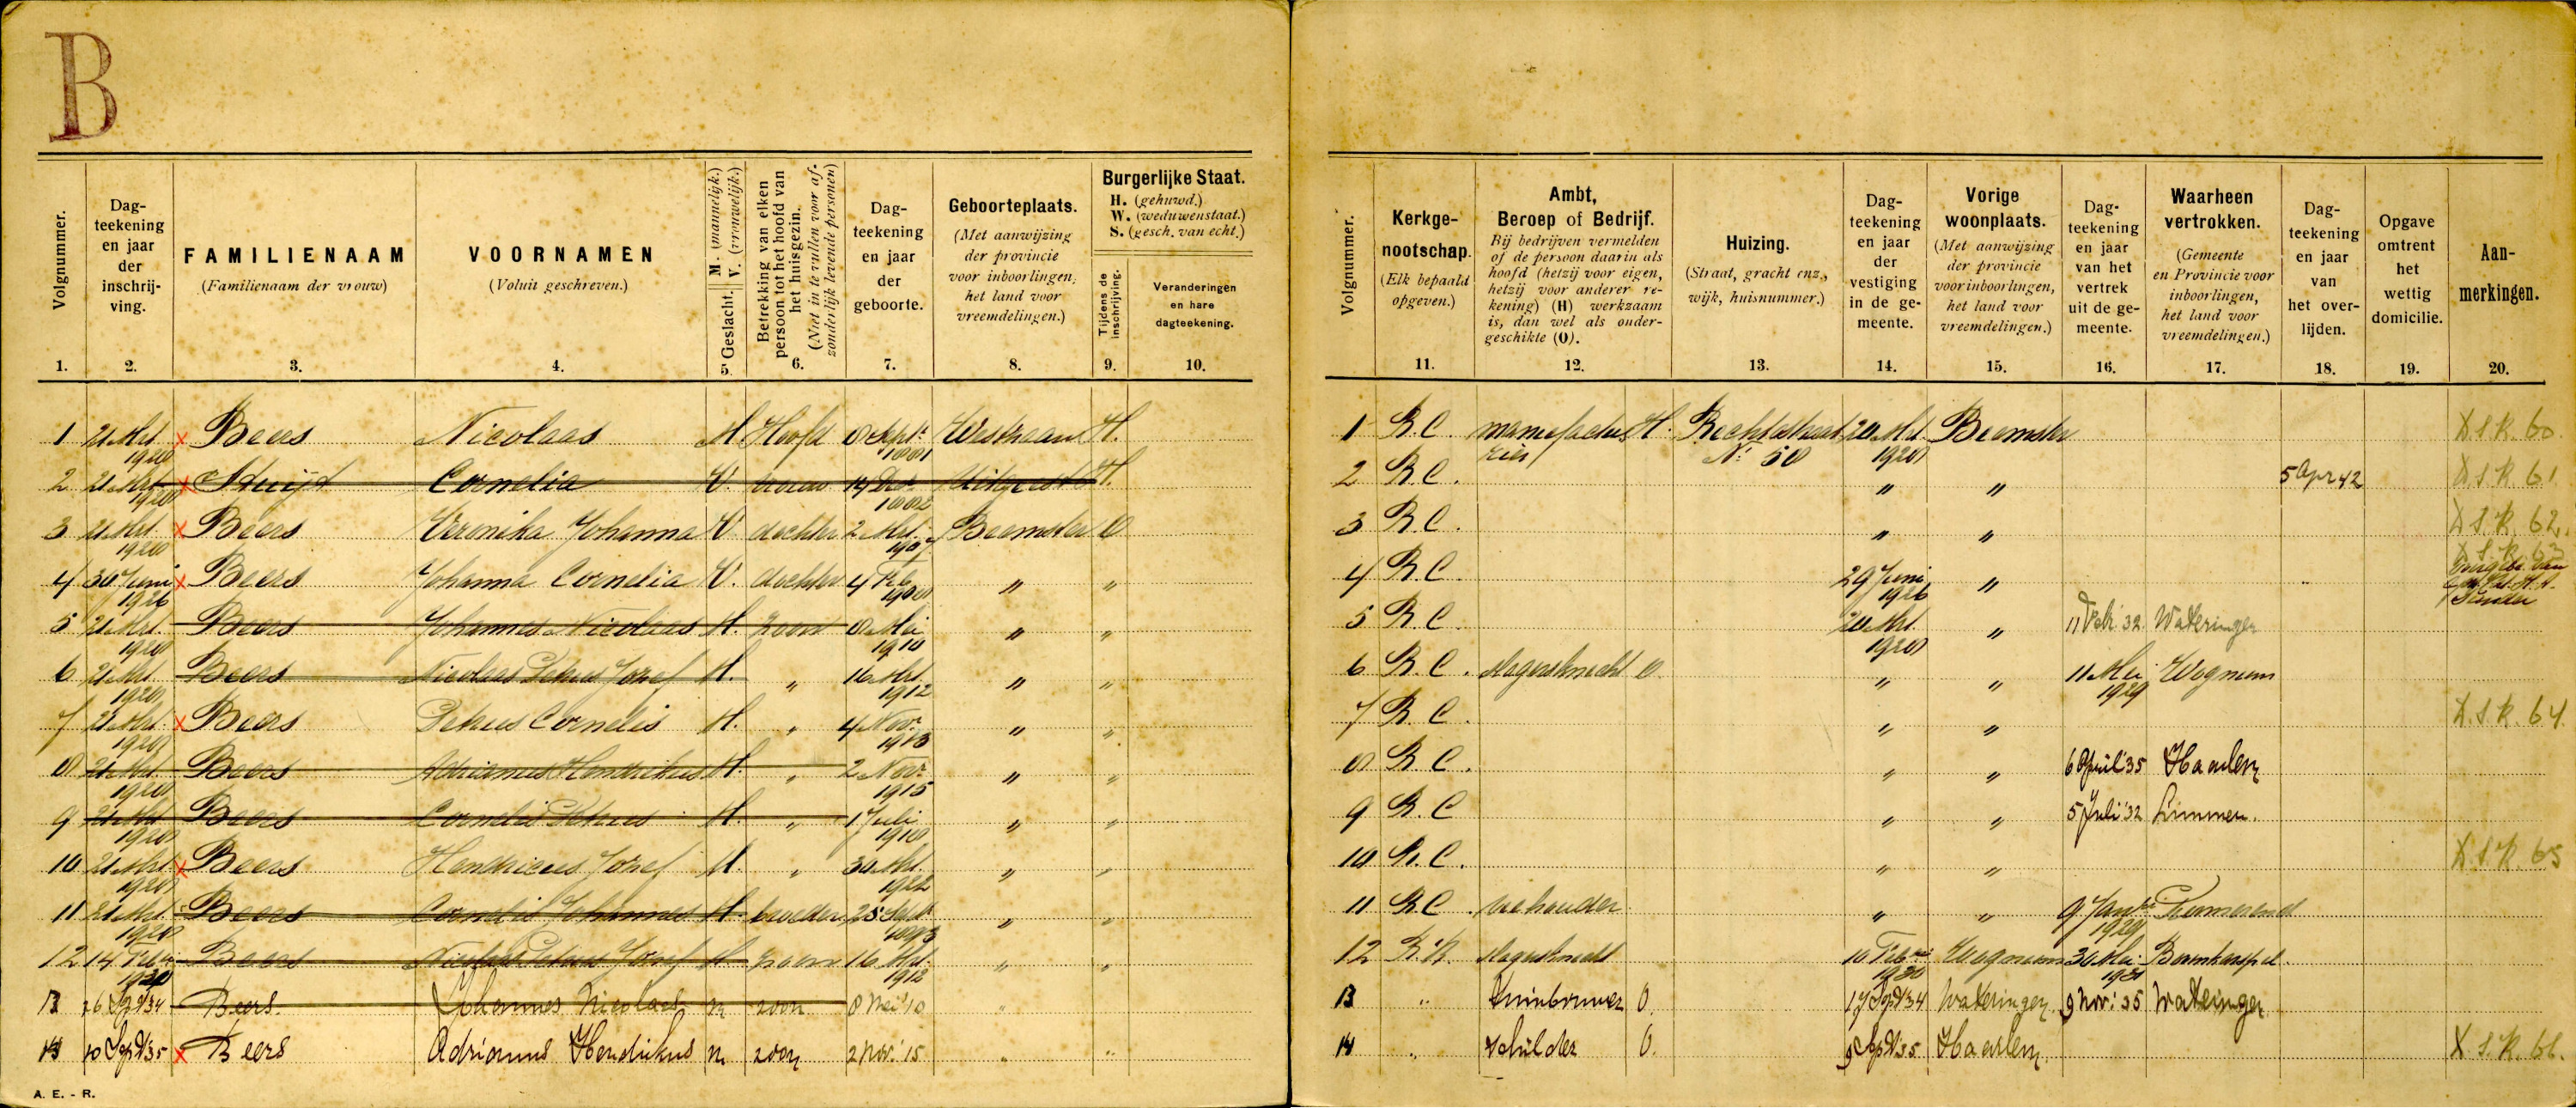 B
Volgnummer.
1.
Dag-
teekening
en jaar
der
inschrij-
ving.
2.
FAMILIENAAM
(Familienaam der vrouw)
3.
VOORNAMEN
(Voluit geschreven.)
4.
Geslacht. M. (mannelijk.)
V. (vrouwelijk.)
5.
Betrekking van elken
persoon tot het hoofd van
het huisgezin.
(Niet in te vullen voor af-
zonderlijk levende personen)
6.
Dag-
teekening
en jaar
der
geboorte.
7.
Geboorteplaats.
(Met aanwijzing
der provincie
voor inboorlingen;
het land voor
vreemdelingen.)
8.
Burgerlijke Staat.
H. (gehuwd.)
W. (weduwenstaat.)
S. (gesch. van echt.)
Tijdens de
inschrijving.
9.
Veranderingen
en hare
dagteekening.
10.
1 21 Mrt 1920 Beers Nicolaas M Hoofd 8 Sept. 1881 Westzaan H.
2 21 Mrt 1920 Cornelia V. vrouw 14 1882 Uitgeest H.
3 21 Mrt 1920 Beers Veronika Johanna V dochter 2 Mrt. 1907 Beemster O
4 30 Juni 1926 Beers Johanna Cornelia V. dochter 4 Feb. 1908 " "
5 21 Mrt. 1920 Beers Johannes Nicolaas M. zoon 8 Mei 1910 " "
6 21 Mrt 1920 Beers Nicolaas Petrus Jozef M. " 16 Mrt 1912 " "
7 21 Mrt. 1920 Beers Petrus Cornelis M. " 4 Nov. 1913 " "
8 21 Mrt. 1920 Beers Adrianus Hendrikus M. " 2 Nov. 1915 " "
9 21 Mrt 1920 Beers Cornelis Petrus M. " 1 Juli 1918 " "
10 21 Mrt. 1920 Beers Hendricus Jozef M. " 30 Mrt. 1922 " "
11 21 Mrt 1920 Beers Cornelis Johannes M. broeder 25 Sept. 1893 " "
12 14 Febr. 1930 Beers Nicolaas Petrus Jozef M zoon 16 Mrt. 1912 " "
13 26 Sept '34 Beers. Johannes Nicolaas m zoon 8 Mei '10 "
14 10 Sept '35 Beers Adrianus Hendrikus m zoon 2 nov. '15 " "
A. E. - R.
Volgnummer.
Kerkge-
nootschap.
(Elk bepaald
opgeven.)
11.
Ambt,
Beroep of Bedrijf.
Bij bedrijven vermelden
of de persoon daarin als
hoofd (hetzij voor eigen,
hetzij voor anderer re-
kening) (H) werkzaam
is, dan wel als onder-
geschikte (O).
12.
Huizing.
(Straat, gracht enz.,
wijk, huisnummer.)
13.
Dag-
teekening
en jaar
der
vestiging
in de ge-
meente.
14.
Vorige
woonplaats.
(Met aanwijzing
der provincie
voor inboorlingen,
het land voor
vreemdelingen.)
15.
Dag-
teekening
en jaar
van het
vertrek
uit de ge-
meente.
16.
Waarheen
vertrokken.
(Gemeente
en Provincie voor
inboorlingen,
het land voor
vreemdelingen.)
17.
Dag-
teekening
en jaar
van
het over-
lijden.
18.
Opgave
omtrent
het
wettig
domicilie.
19.
Aan-
merkingen.
20.
1 R.C. manufactu H. Rechtestraat 20 Mrt. Beemster D.S.K. 60.
rier No. 58 1920
2 R.C. " " 5 Apr 42 D.S.K. 61
3 R.C. " " D.S.K. 62.
4 R.C. 29 Juni 1926 " D.S.K. 63
5 R.C. 20 Mrt. 1920 " 11 Feb. '32. Wateringen
6 R.C. slagersknecht O. " " 11 Mei 1929 Wognum
7 R.C. " " D.S.K. 64
8 R.C. " " 6 April '35 Haarlem
9 R.C " " 5 Juli '32 Limmen.
10 R.C. " " D.S.K. 65
11 R.C. veehouder " " 9 Jan. 1929 Purmerend
12 R.K. slagersknecht 10 Febr. 1930 Wognum 30 Mei 1931 Bovenkarspel.
13 " tuinbouwer O. 17 Sept '34 Wateringen. 9 Nov. '35 Wateringen
14 " schilder O. 9 Sept '35. Haarlem. D.S.K. 66.